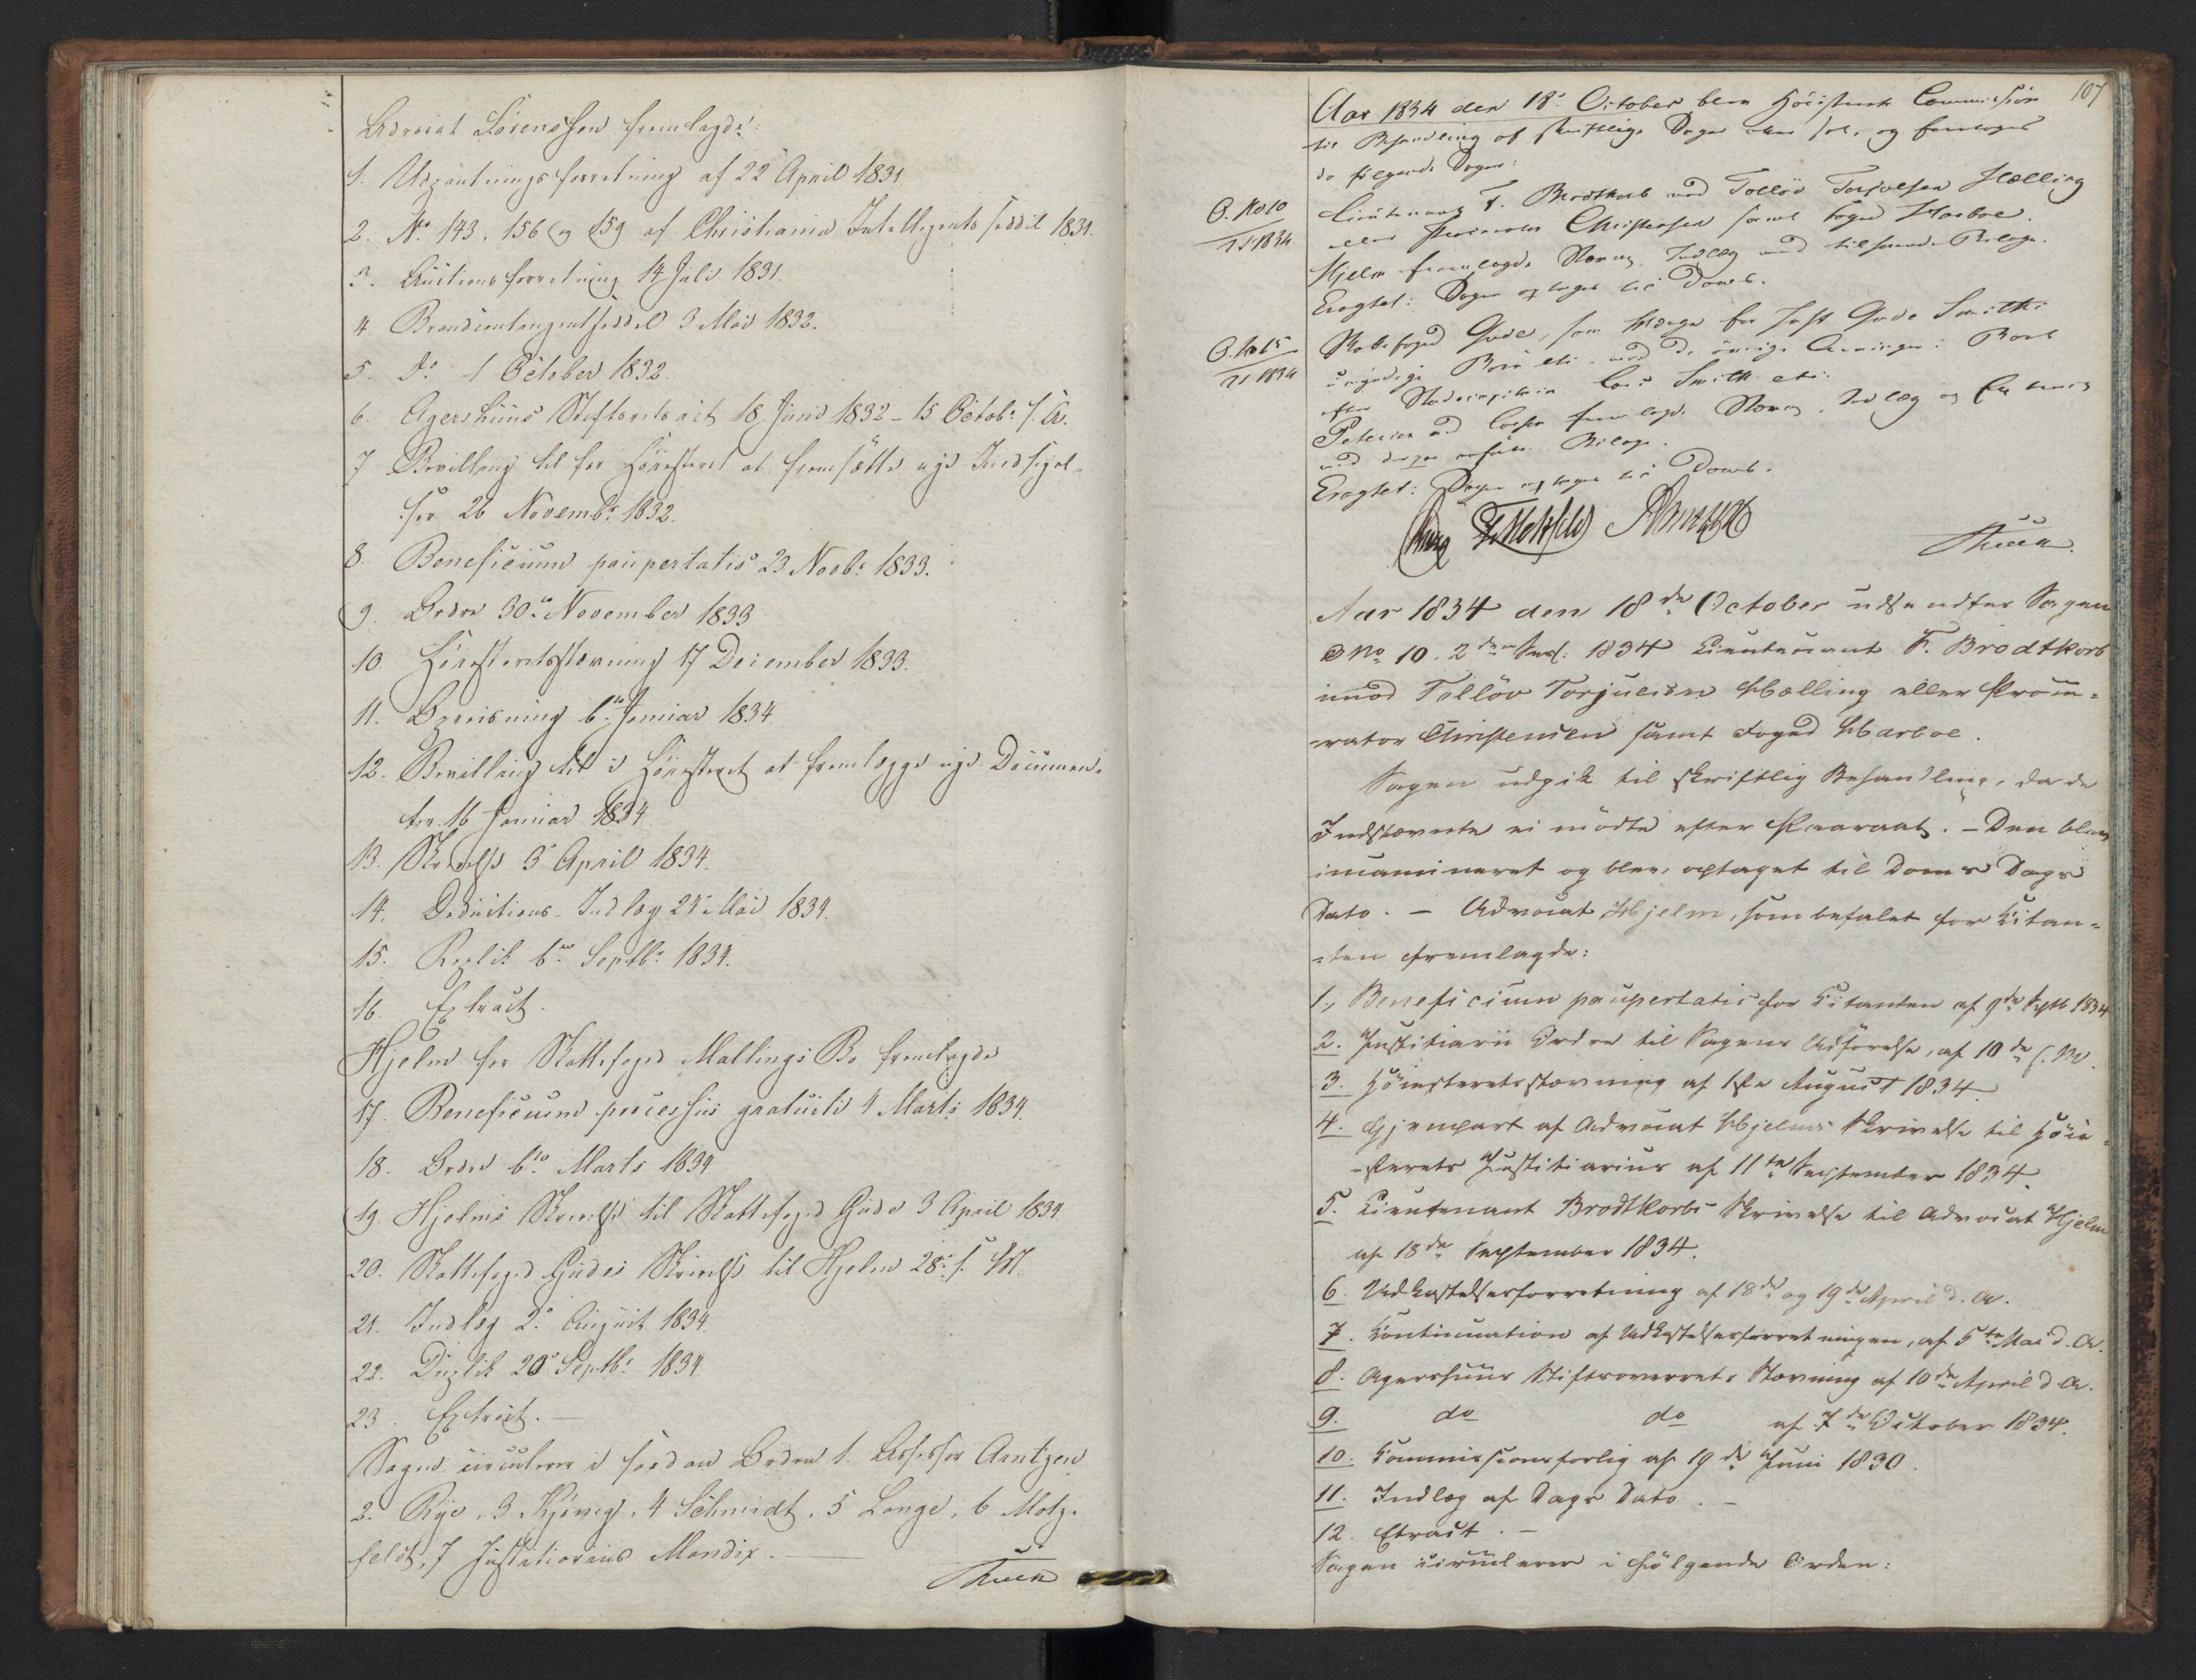 Advocat Sörenssen fremlagde:
1. Udpantningsforretning af 22 April 1831.
2. No 143, 156 og 159 af Christiania Intelligentsseddel 1831.
3. Auctionsforretning 14 Juli 1831.
4. Brandcontingentseddel 3 Mai 1832.
5. Do 1 October 1832.
6. Agershuus Stiftsretsact 18 Juni 1832 - 15 Octobr s. A.
7. Bevilling til for Höiesteret at fremsætte nye Indsigel-
ser 26 Novembr 1832.
8. Beneficium paupertatis 23 Novbr 1833.
9. Ordre 30te November 1833
10. Höiesteretsstævning 17 December 1833.
11. 6te Januar 1834
12. Bevilling til i Höiesteret at fremlægge nye Documen-
ter 16 Januar 1834
13. Skrivelse 3 April 1834.
14. Deductions-Indlæg 24 Mai 1834.
15. Replik 6te Septbr 1834.
16. Extract.
Hjelm for Skattefoged Mallings Bo fremlagde
17. Beneficium processus gratuiti 4 Marts 1834.
18. Ordre 6te Marts 1834
19. Hjelms Skrivelse til Skattefoged Gude 3 April 1834.
20. Skattefoged Gudes Skrivelse til Hjelm 28 s. M.
21. Indlæg 2 August 1834.
22. Duplik 20 Septbr 1834.
23. Extract. —
Sagen circulerer i saadan Orden 1. Assessor Arntzen
2. Rye, 3 Kjönig, 4 Schmidt, 5 Lange, 6 Motz-
feldt, 7 Justitiarius Mandix.
107
Aar 1834 den 18. October blev Höiesterets Commission
til Behandling af skriftlige Sager holdt, og foretoges
da følgende Sager:
O. No 10
2 S 1834
Lieutenant F. Brodtkorb mod Tollöv Torjulsen Hælling
eller Procurator Christensen samt Foged Harboe.
Hjelm fremlagde Stævning, Indlæg med tilhørende Bilage.
Eragtet: Sagen optages til Doms.
O. No 15
2 S 1834
Skattefoged Gude, som Værge for Gude Smiths
umyndige Börn etc. mod de övrige Arvinger i Boet
efter Stadscapitain Smith etc.
Petersen fremlagde Stævning, Indlæg og Extract
med Bilage.
Eragtet: Sagen optages til Doms.
Motzfeldt
Aar 1834 den 18de October udsendtes Sagen
O No 10. 2den Sess. 1834 Lieutenant F. Brodtkorb
imod Tollöv Torjuelsen Hælling eller Procu-
rator Christensen samt Foged Harboe.
Sagen udgik til skriftlig Behandling, da de
Indstævnte ei mödte efter Paaraab. - Den blev
incamineret og blev optaget til Doms Dags
Dato. — Advocat Hjelm, som befalet for Citan-
ten fremlagde:
1. Beneficium paupertatis for Citanten af 9de Septb 1834
2. Justitiarii Ordre til Sagens Udförelse, af 10de s. M.
3. Höiesteretsstævning af 1ste August 1834
4. Gjenpart af Advocat Hjelms Skrivelse til Höie-
sterets Justitiarius af 11te September 1834.
5. Lieutenant Brodtkorbs Skrivelse til Advocat Hjelm
af 18de September 1834.
6. Udkastelsesforretning af 18de og 19de April d. A.
7. Continuation af Udkastelsesforretningen, af 5te Mai d. A.
8. Agershuus Stiftsoverrets Stævning af 10de April d A.
9. do do af 7de October 1834.
10. Commissionsforlig af 19de Juni 1830.
11. Indlæg af Dags Dato. —
12. Etract. —
Sagen circulerer i fölgende Orden: